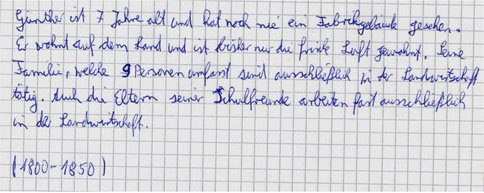 Günther ist 7 Jahre alt und hat noch nie ein Fabrikgebäude gesehen.
Er wohnt auf dem Land und ist bisher nur die frische Luft gewohnt. Seine
Familie, welche 9 Personen umfasst sind ausschließlich in der Landwirtschaft
tätig. Auch die Eltern seiner Schulfreunde arbeiten fast ausschließlich
in der Landwirtschaft.
(1800-1850)